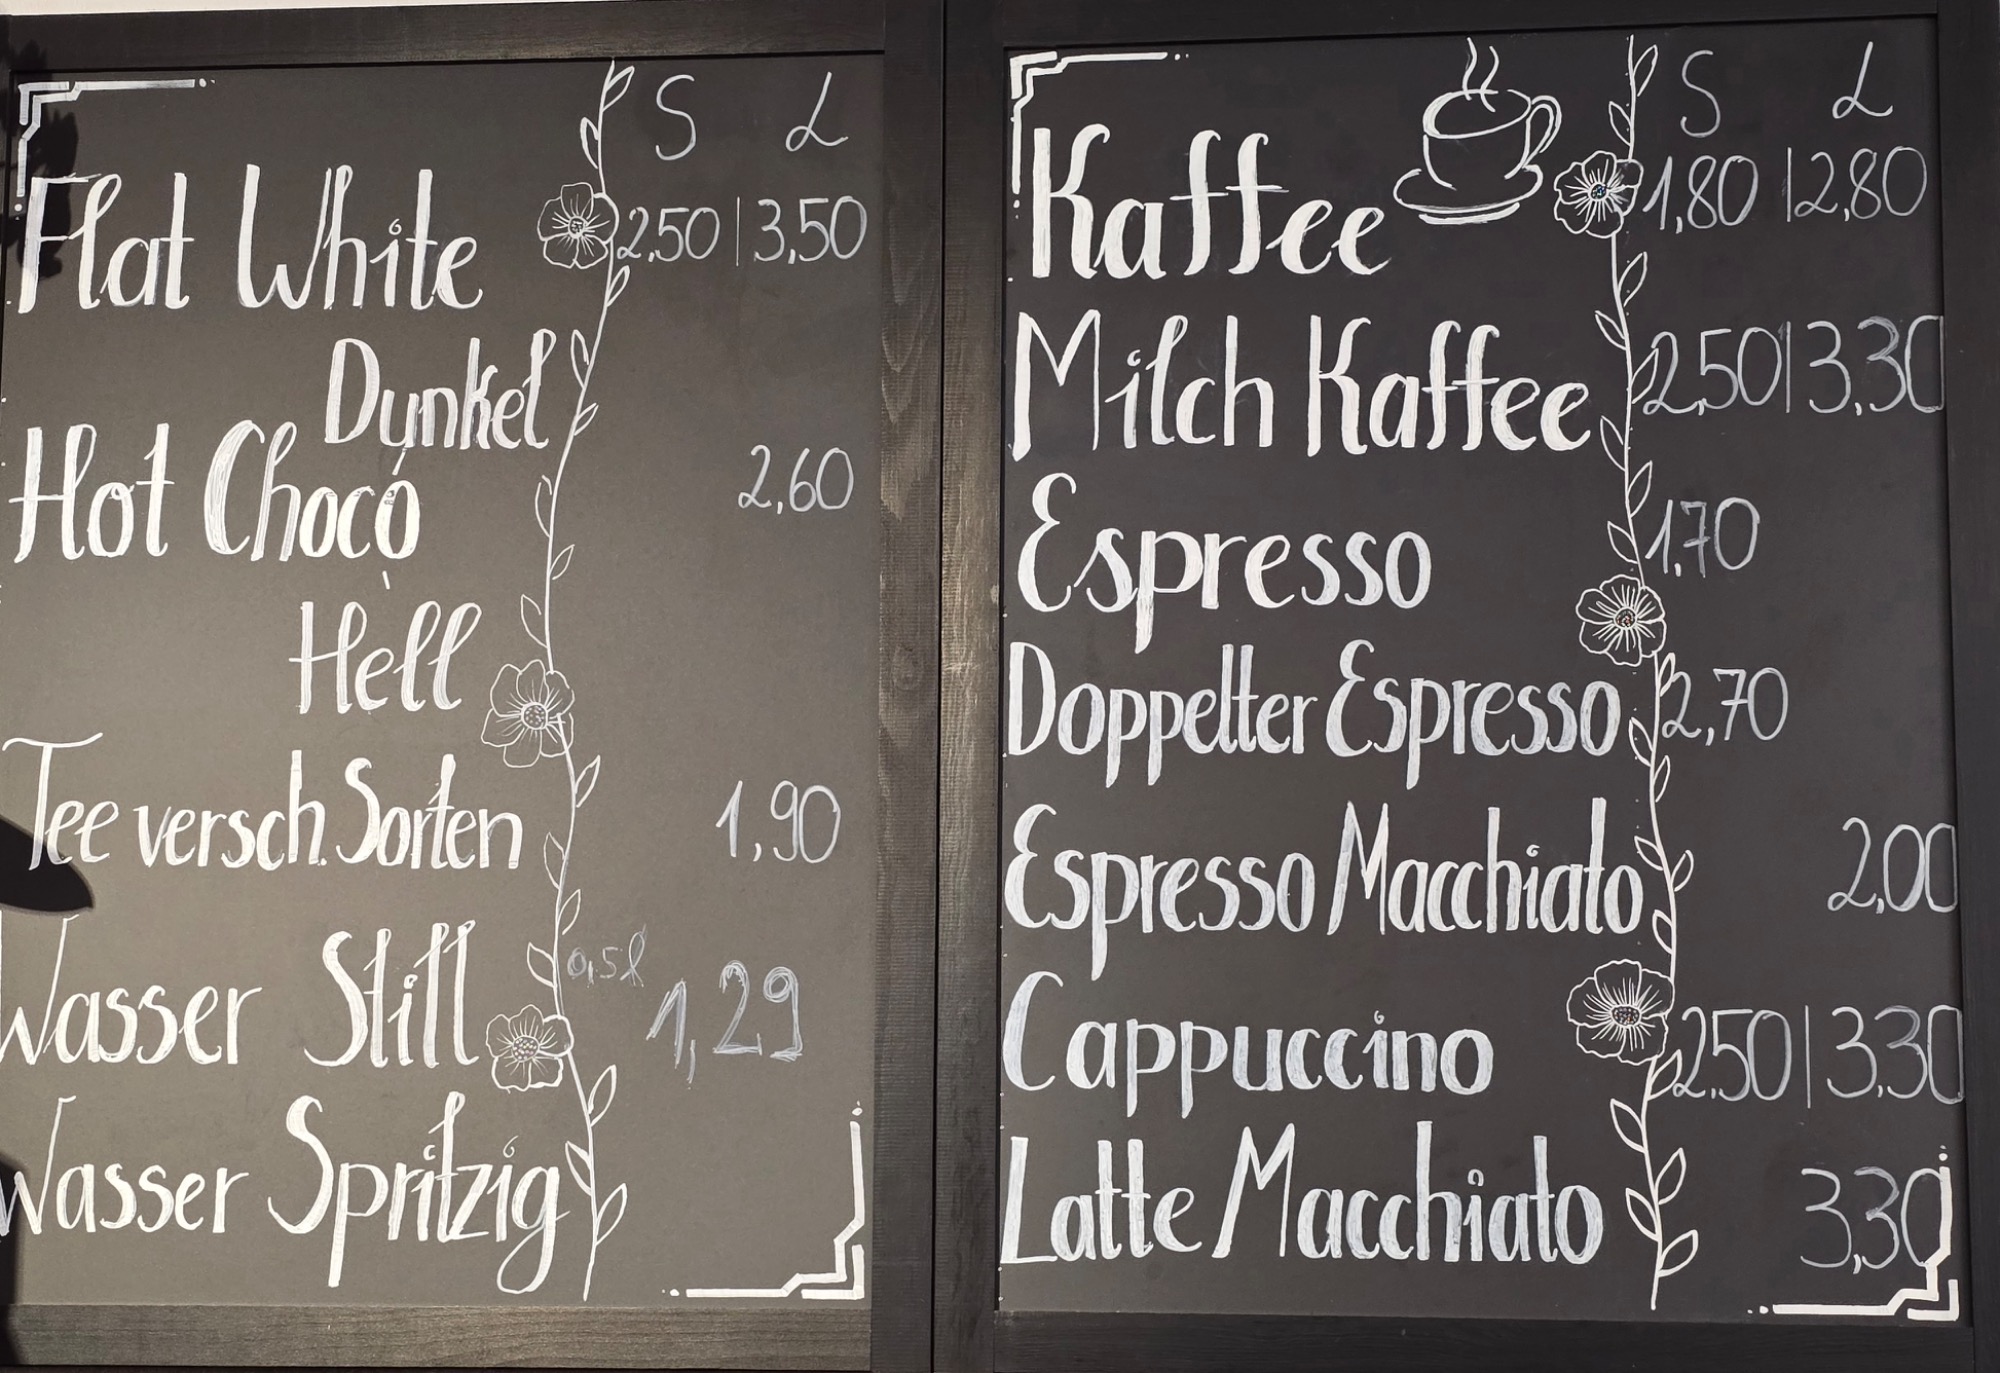 S L
Flat White 2,50 | 3,50
Dunkel
Hot Choco 2,60
Hell
Tee versch. Sorten 1,90
Wasser Still 0,5l 1,29
Wasser Spritzig
S L
Kaffee 1,80 | 2,80
Milch Kaffee 2,50 | 3,30
Espresso 1,70
Doppelter Espresso 2,70
Espresso Macchiato 2,00
Cappuccino 2,50 | 3,30
Latte Macchiato 3,30